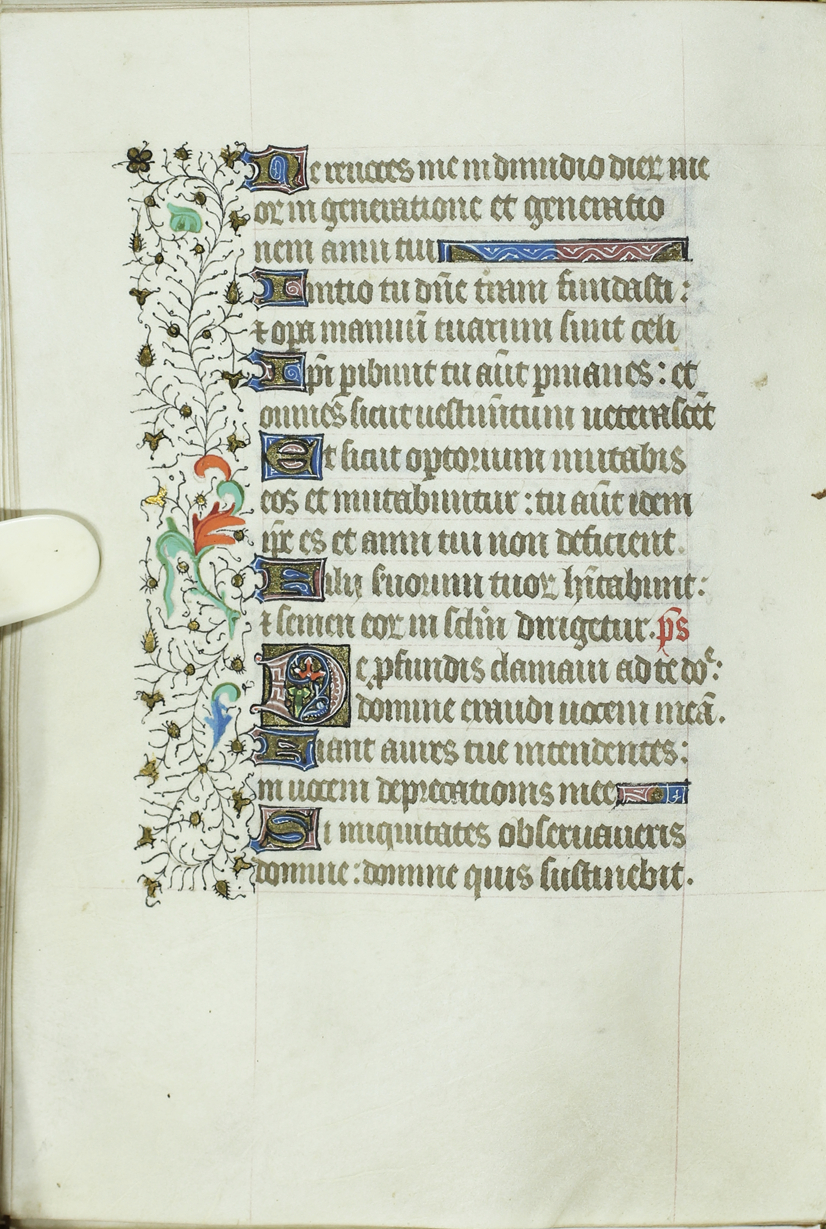 Ne reuoces me in dimidio dieꝝ me
oꝝ in generatione et generatio
nem anni tui
Initio tu dn̄e tr̄am fundasti :
⁊ oꝑa manuū tuarum sunt celi
Ip̄i ꝑibunt tu aūt ꝑmanes : et
omnes sicut uestim̄tum ueterascēt
Et sicut optorium mutabis
eos et mutabuntur : tu aūt idem
ip̄e es et anni tui non deficient.
Filij seruorum tuoꝝ h̄itabunt :
⁊ semen eoꝝ in sc̄l̄m dirigetur. p̄s
De ꝓfundis clamaui ad te dōe :
domine exaudi uocem meā.
Fiant aures tue intendentes :
in uocem deprecationis mee
Si iniquitates obseruaueris
domine : domine quis sustinebit.